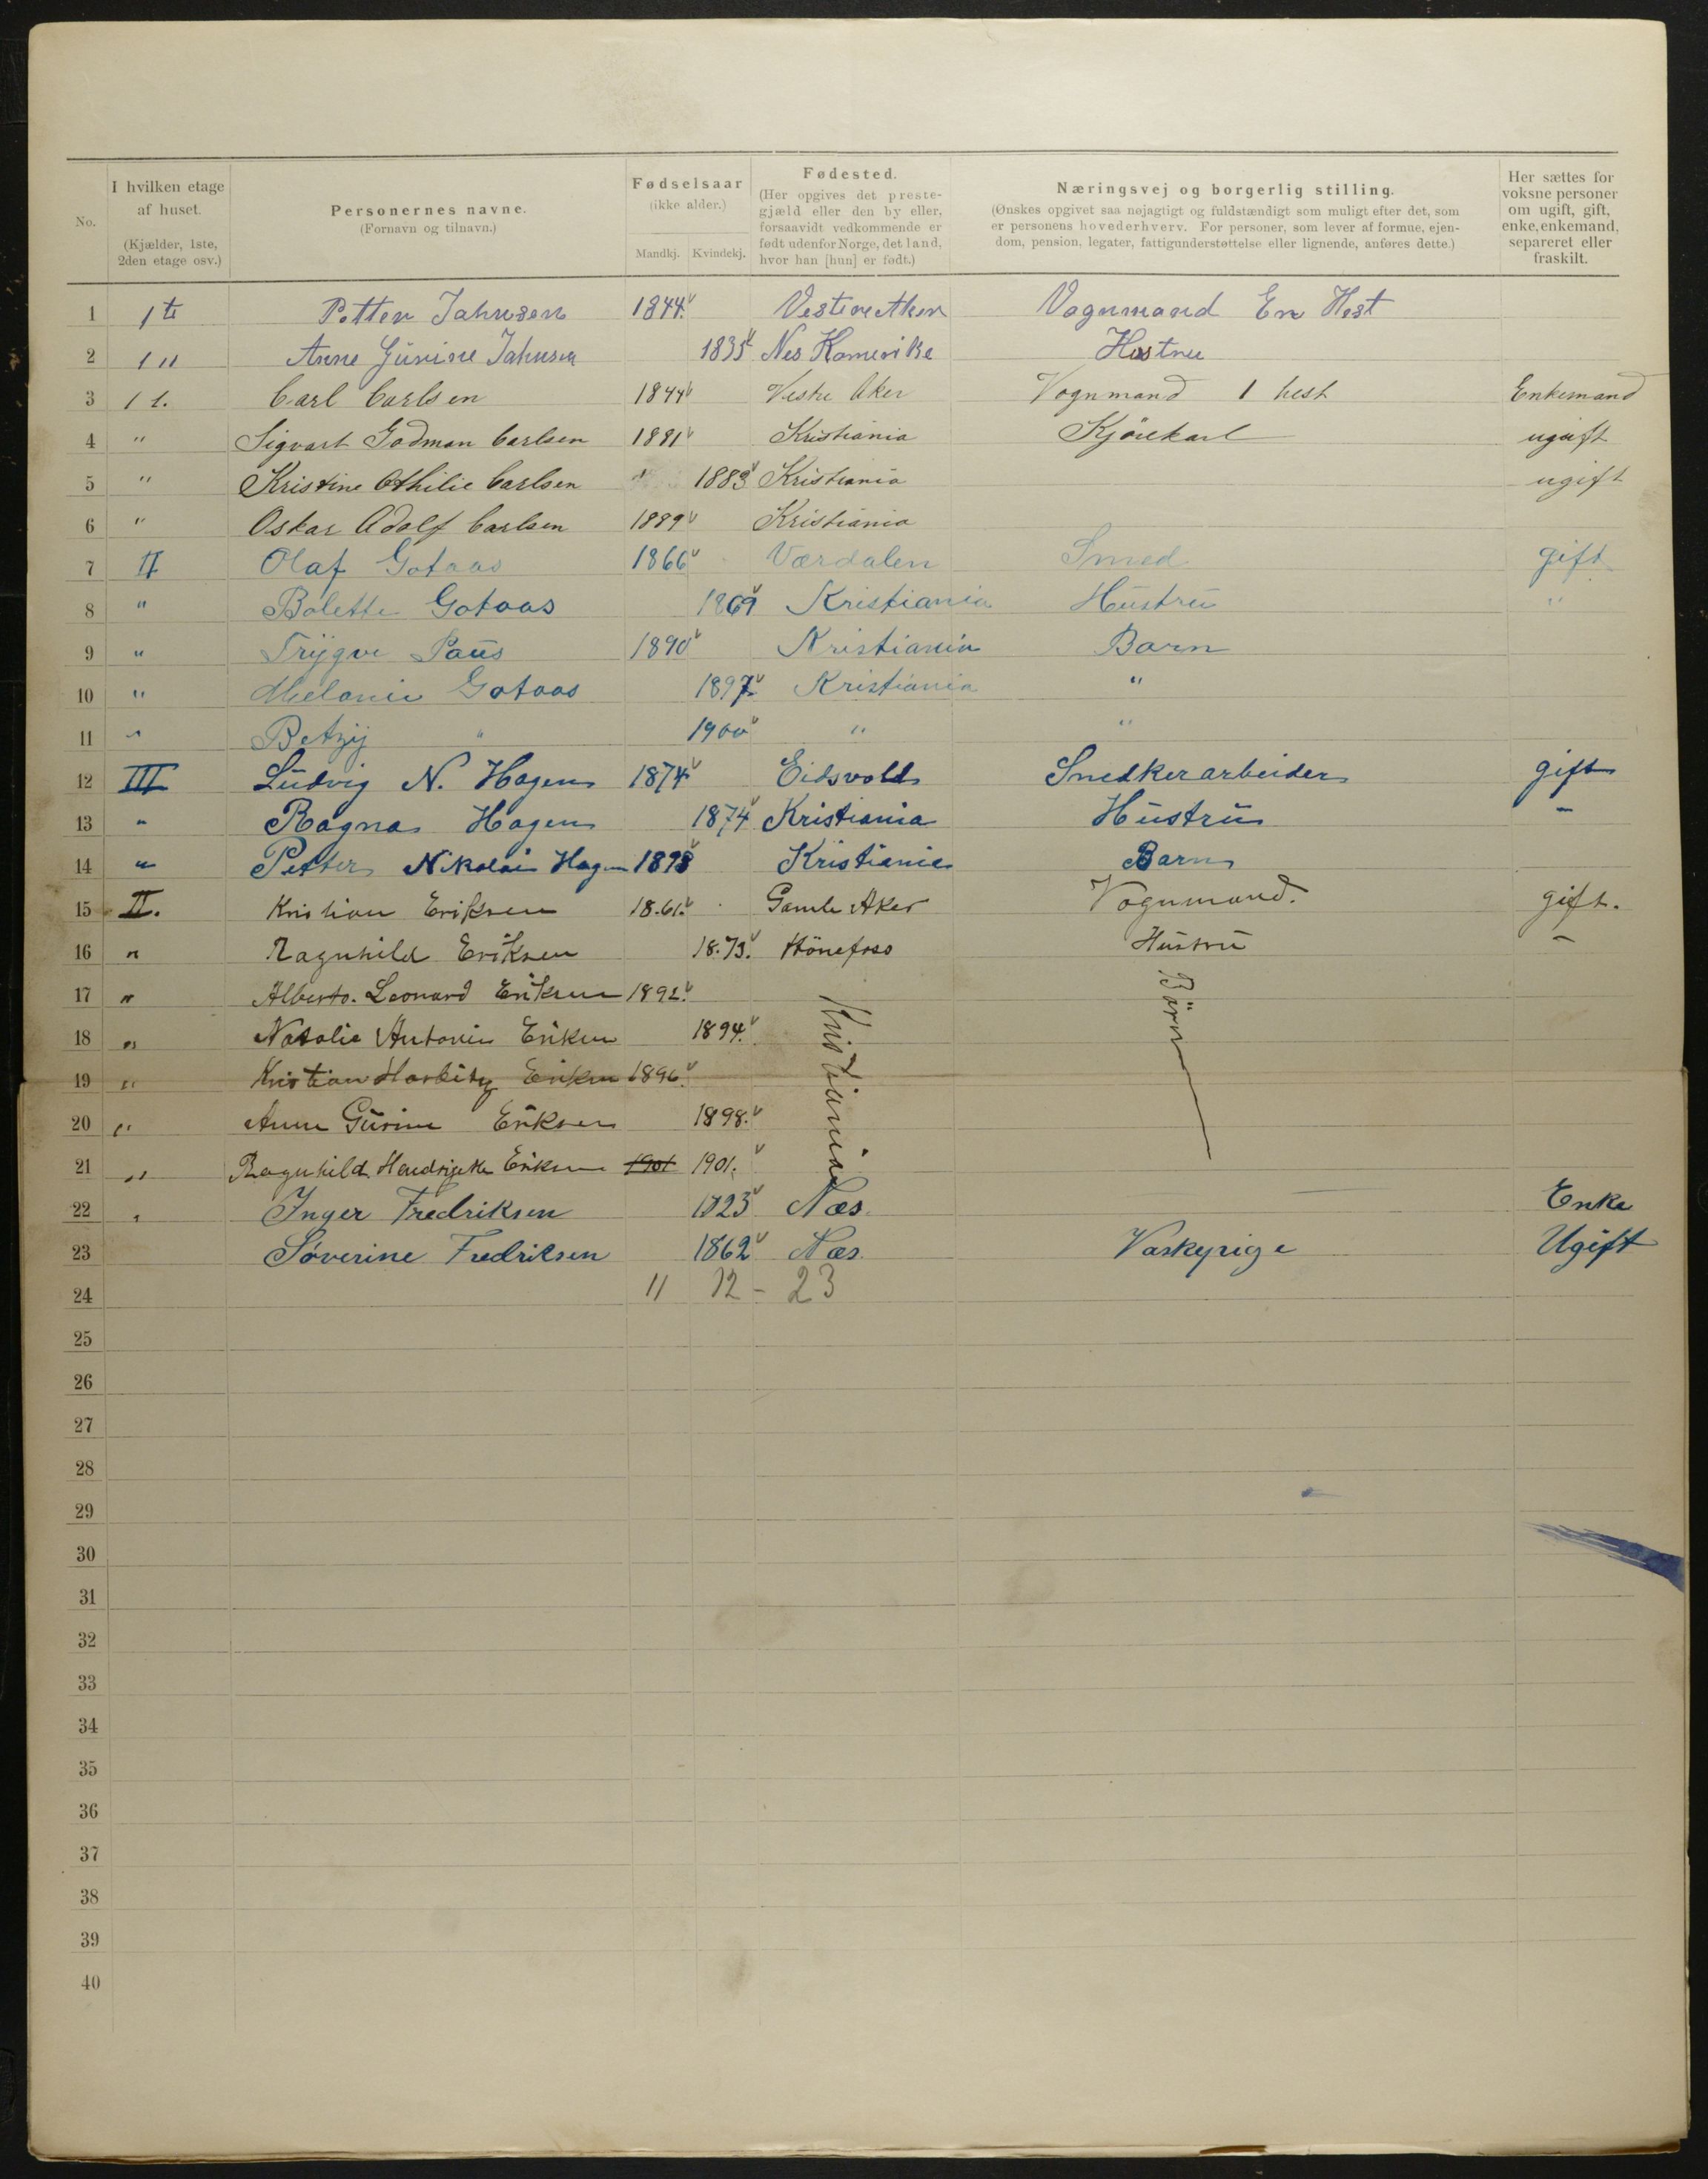 No.
I hvilken etage af huset.
(Kjælder, 1ste, 2den etage osv.)
Personernes navne.
(Fornavn og tilnavn.)
Fødselsaar
(ikke alder.)
Mandkj. Kvindekj.
Fødested.
(Her opgives det prestegjæld eller den by eller, forsaavidt vedkommende er født udenfor Norge, det land, hvor han [hun] er født.)
Næringsvej og borgerlig stilling.
(Ønskes opgivet saa nøjagtigt og fuldstændigt som muligt efter det, som er personens hovederhverv. For personer, som lever af formue, ejendom, pension, legater, fattigunderstøttelse eller lignende, anføres dette.)
Her sættes for voksne personer om ugift, gift, enke, enkemand, separeret eller fraskilt.
1 1te Petter Jahnsen 1844 Vestere Aker Vognmand En Hest
2 1 " Anne Gurine Jahnsen 1835 Nes Romerike Hustru
3 1 t. Carl Carlsen 1844 Vestre Aker Vognmand 1 hest Enkemand
4 " Sigvart Godman Carlsen 1881 Kristiania Kjörekarl ugift
5 " Kristine Othilie Carlsen 1883 Kristiania ugift
6 " Oskar Adolf Carlsen 1889 Kristiania
7 II Olaf Gotaas 1866 Værdalen Smed gift
8 " Bolette Gotaas 1869 Kristiania Hustru "
9 " Trygve Paus 1890 Kristiania Barn
10 " Melanie Gotaas 1897 Kristiania "
11 " Betzy " 1900 " "
12 III Ludvig N. Hagen 1874 Eidsvold Snedkerarbeider gift
13 " Ragna Hagen 1874 Kristiania Hustru -
14 " Petter Nikolai Hagen 1898 Kristiania Barn
15 II. Kristian Eriksen 18.61. Gamle Aker Vognmand. gift.
16 " Ragnhild Eriksen 18.73. Hönefoss Hustru -
17 " Alberto. Leonard Eriksen 1892. Kristiania Börn
18 " Natalie Antonie Eriksen 1894.
19 " Kristian Eriksen 1896.
20 " Anne Gurine Eriksen 1898.
21 " Ragnhild Eriksen 1901 1901.
22 " Inger Fredriksen 1823 Næs. Enke
23 Söverine Fredriksen 1862 Næs. Vaskepige Ugift
24 11 12 - 23
25
26
27
28
29
30
31
32
33
34
35
36
37
38
39
40